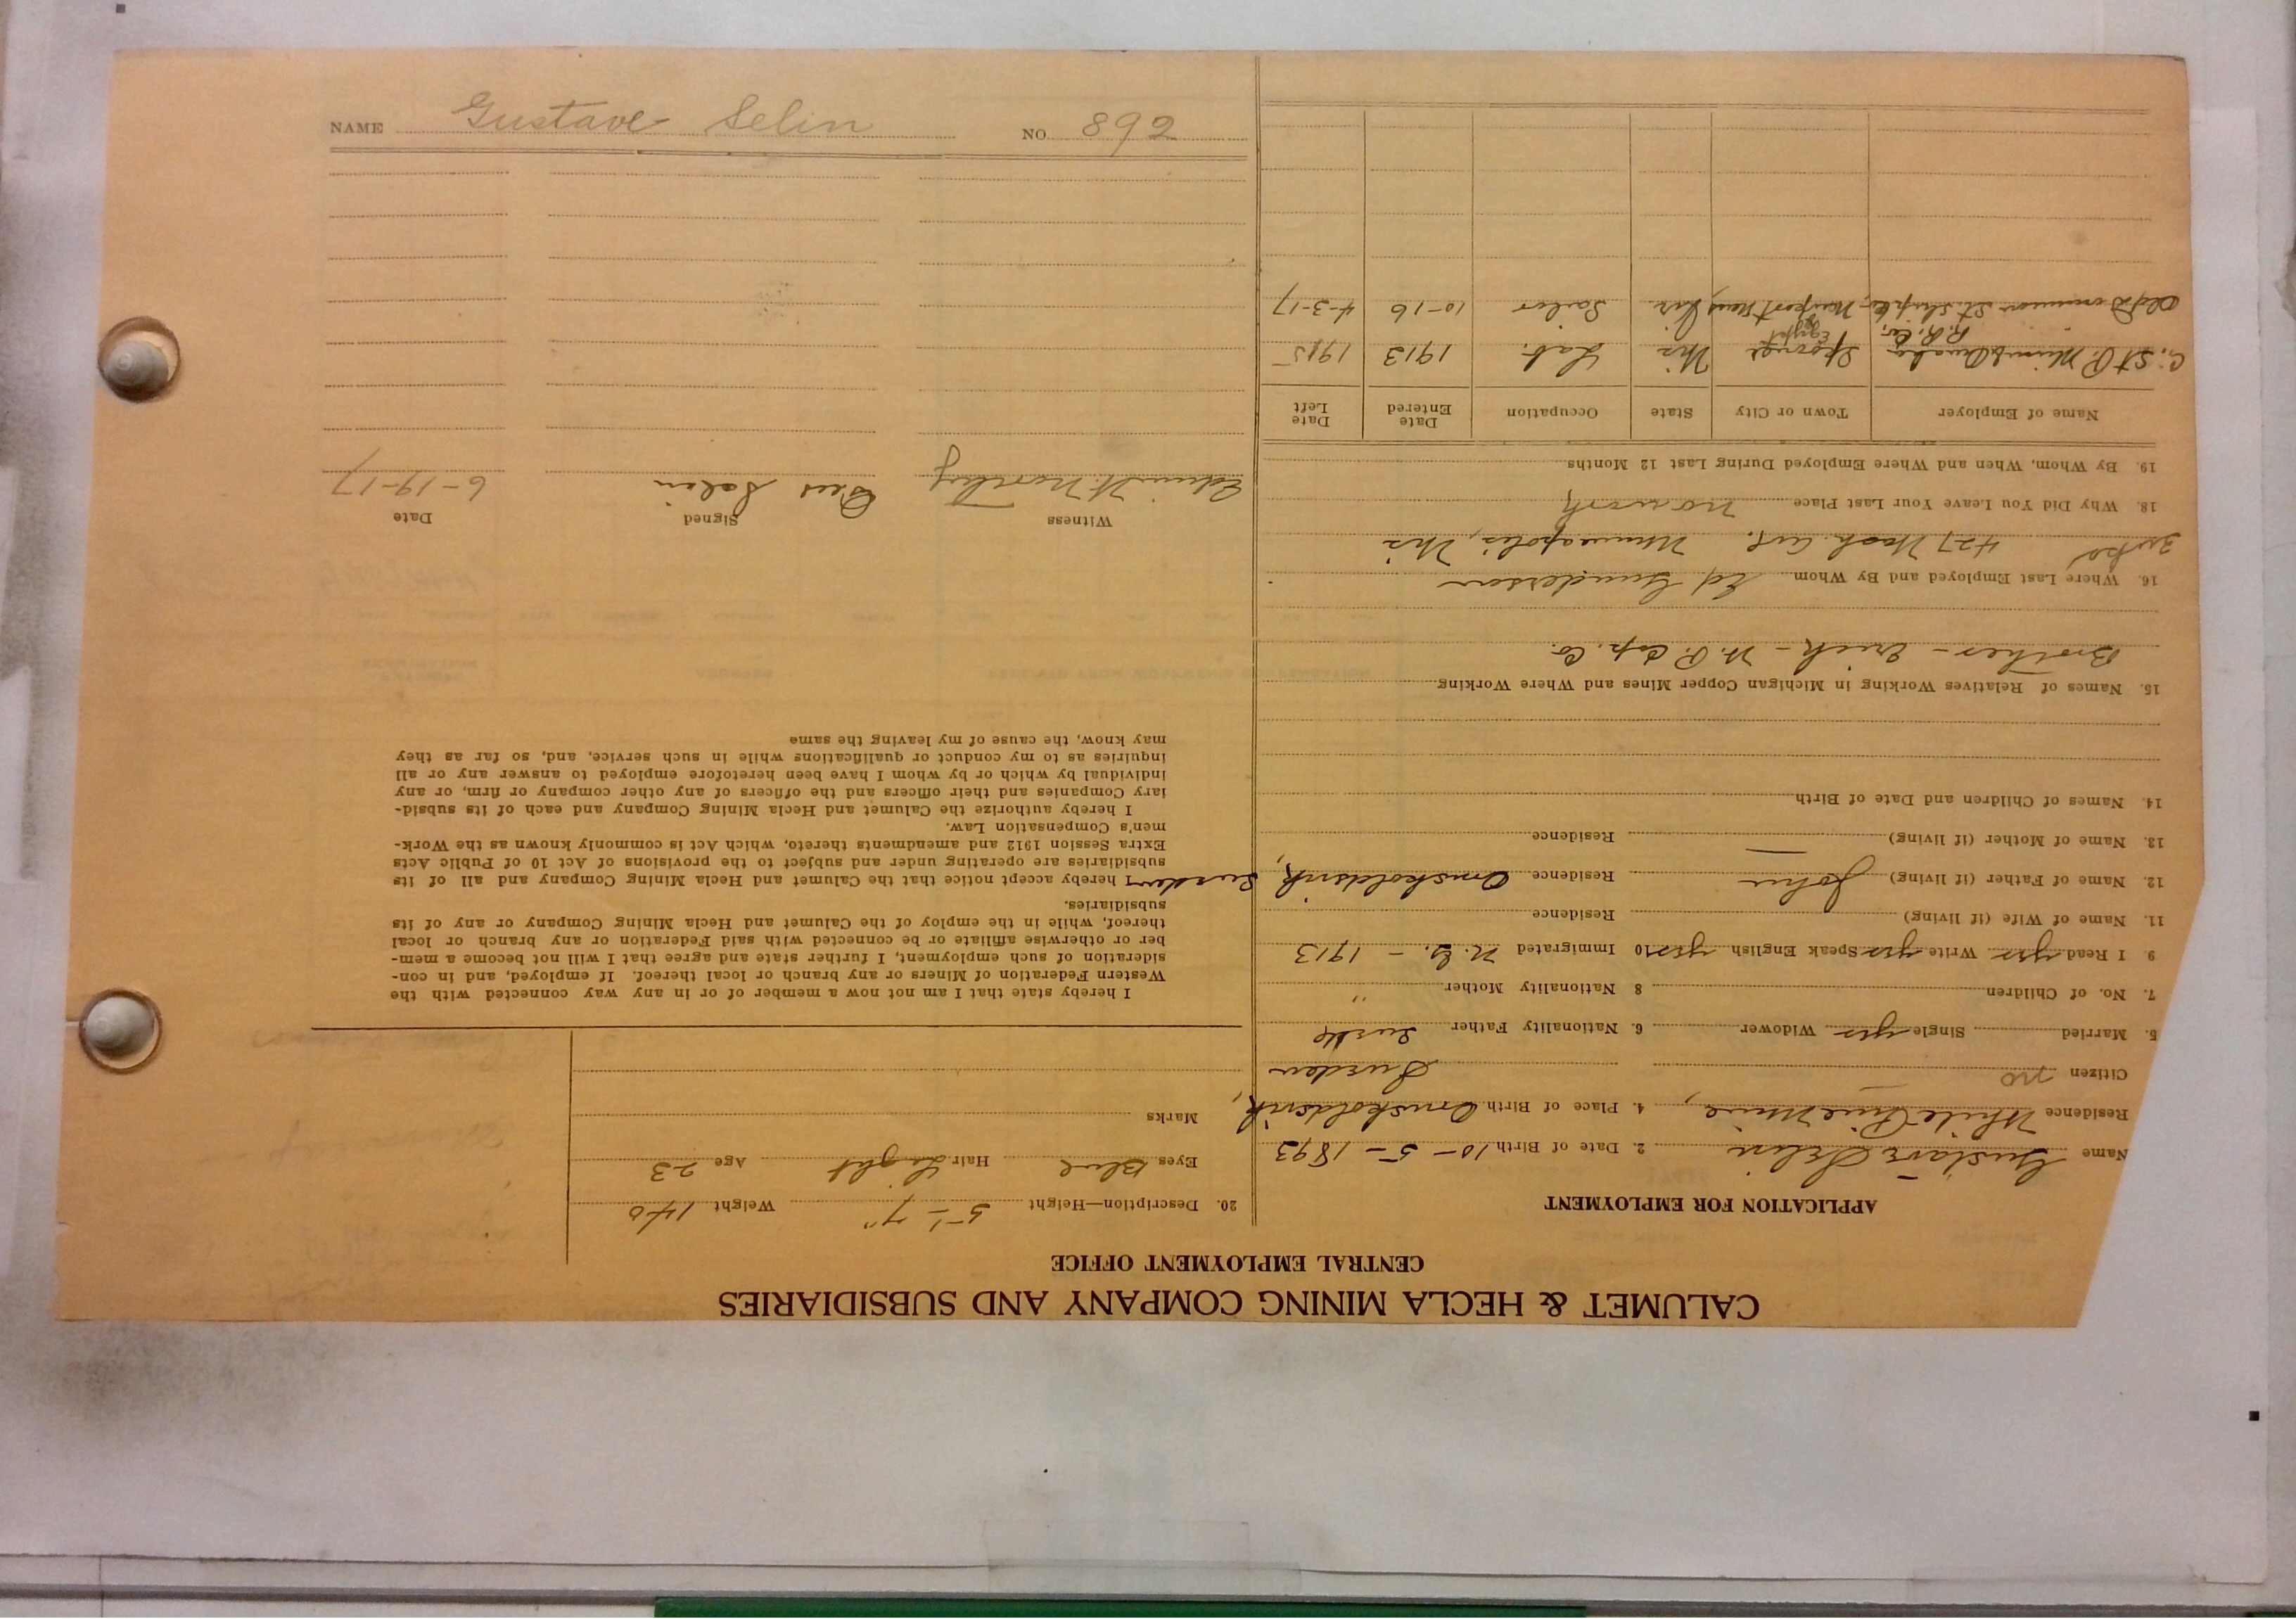 CALUMET & HECLA MINING COMPANY AND SUBSIDIARIES
CENTRAL EMPLOYMENT OFFICE
APPLICATION FOR EMPLOYMENT
Name Gustave Selin 2. Date of Birth 10 - 5 - 1893
Residence White Pine Mine, 4. Place of Birth Ornskoldsvik,
Citizen no Sweden
5. Married Single yes Widower 6. Nationality Father Swede
7. No. of Children 8 Nationality Mother "
9. I Read yes Write yes Speak English yes 10 Immigrated N.Y. - 1913
11. Name of Wife (if living) Residence
12. Name of Father (if living) John Residence Ornskoldsvik, Sweden
13. Name of Mother (if living) — Residence
14. Names of Children and Date of Birth
15. Names of Relatives Working in Michigan Copper Mines and Where Working
Brother - Erick - W. P. Cop. Co.
16. Where Last Employed and By Whom Ed. Gunderson
427 Wash. Ave. Minneapolis, Wis
18. Why Did You Leave Your Last Place no work
19. By Whom, When and Where Employed During Last 12 Months
Name of Employer Town or City State Occupation Date Entered Date Left
C. St P. Minn & Omaha R. R. Co. Spooner Wis Lab. 1913 1915
Old Dominion St. Ship Co, Newport News, Vir. Sailor 10-16 4-3-17
20. Description—Height 5' - 7" Weight 140
Eyes Blue Hair Light Age 23
Marks
I hereby state that I am not now a member of or in any way connected with the
Western Federation of Miners or any branch or local thereof. If employed, and in con-
sideration of such employment, I further state and agree that I will not become a mem-
ber or otherwise affiliate or be connected with said Federation or any branch or local
thereof, while in the employ of the Calumet and Hecla Mining Company or any of its
subsidiaries.
I hereby accept notice that the Calumet and Hecla Mining Company and all of its
subsidiaries are operating under and subject to the provisions of Act 10 of Public Acts
Extra Session 1912 and amendments thereto, which Act is commonly known as the Work-
men's Compensation Law.
I hereby authorize the Calumet and Hecla Mining Company and each of its subsid-
iary Companies and their officers and the officers of any other company or firm, or any
individual by which or by whom I have been heretofore employed to answer any or all
inquiries as to my conduct or qualifications while in such service, and, so far as they
may know, the cause of my leaving the same
Witness Signed Date
Edwin H. Gus Selin 6-19-17
NAME Gustave Selin NO. 892